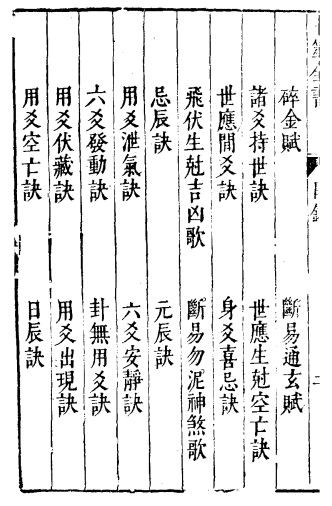 碎金賦　斷易通玄賦
諸爻持世訣　世應生尅空亡訣
世應間爻訣　身爻喜忌訣
飛伏生尅吉凶歌　斷易勿泥神煞歌
忌辰訣　元辰訣
用爻泄氣訣　六爻安靜訣
六爻發動訣　卦無用爻訣
用爻伏藏訣　用爻出現訣
用爻空亡訣　日辰訣